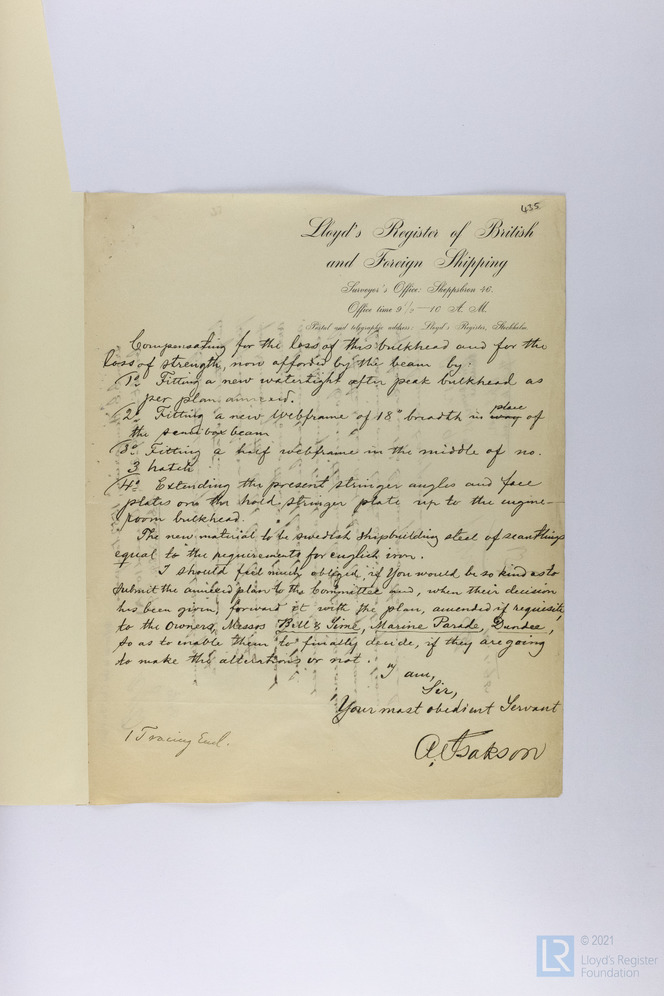 435
Lloyd's Register of British
and Foreign Shipping
Surveyor's Office: Skeppsbron 46.
Office time 9 1/2 — 10 A. M.
Postal and telegraphic address: Lloyd's Register, Stockholm.
Compensating for the loss of this bulkhead and for the
loss of strength, now afforded by the beam by:
1o. Fitting a new watertight after peak bulkhead as
per plan annexed.
2o. Fitting a new webframe of 18" breadth in place of
the beam
3o. Fitting a half webframe in the middle of no.
3 hatch
4o. Extending the present stringer angles and face
plates on the hold stringer plate up to the engine-
room bulkhead.
The new material to be swedish shipbuilding steel of scantlings
equal to the requirements for english iron.
I should feel much obliged, if You would be so kind as to
submit the annexed plan to the Committee and, when their decision
has been given, forward it with the plan, amended if requisite,
to the Owners, Messrs Bell & Sime, Marine Parade, Dundee,
so as to enable them to finally decide, if they are going
to make the alterations or not.
I am,
Sir,
Your most obedient Servant
1 Tracing Encl.
A. Isakson
© 2021
LR
Lloyd's Register
Foundation